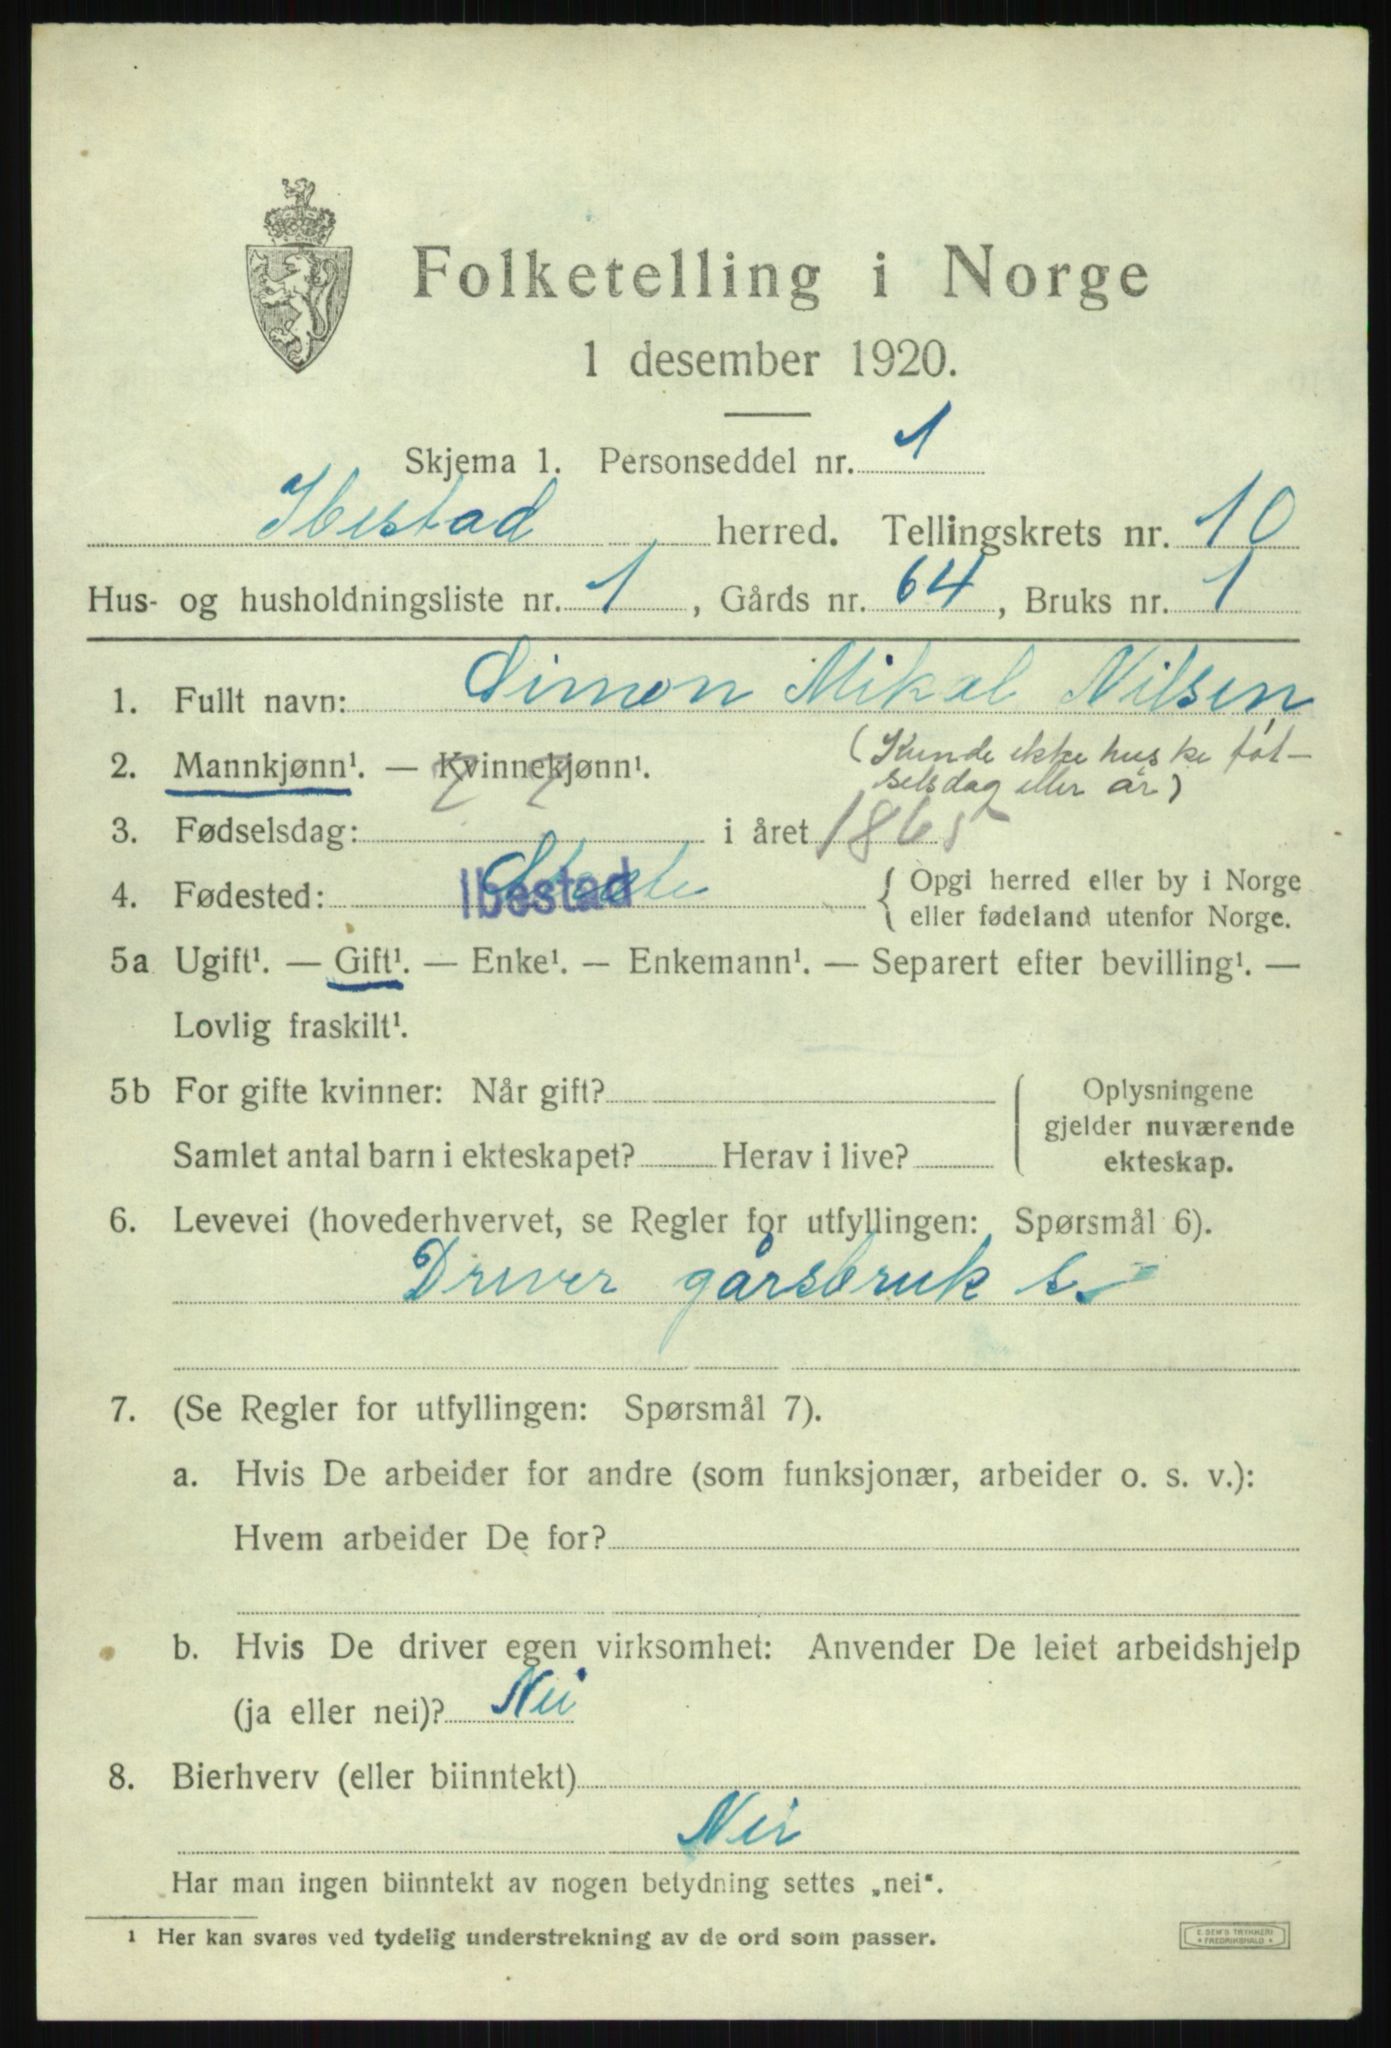 Folketelling i Norge
1 desember 1920.
Skjema 1. Personseddel nr. 1
Ibestad herred. Tellingskrets nr. 10
Hus- og husholdningsliste nr. 1, Gårds nr. 64, Bruks nr. 1
1. Fullt navn: Simon Mikal Nilsen
2. Mannkjønn¹. — Kvinnekjønn¹. (Kunde ikke huske føt-
selsdag eller år)
3. Fødselsdag: i året 1865
4. Fødested: Ibestad { Opgi herred eller by i Norge
eller fødeland utenfor Norge.
5a Ugift¹. — Gift¹. — Enke¹. — Enkemann¹. — Separert efter bevilling¹. —
Lovlig fraskilt¹.
5b For gifte kvinner: Når gift? Oplysningene
gjelder nuværende
Samlet antal barn i ekteskapet? Herav i live? ekteskap.
6. Levevei (hovederhvervet, se Regler for utfyllingen: Spørsmål 6).
Driver gårsbruk s
7. (Se Regler for utfyllingen: Spørsmål 7).
a. Hvis De arbeider for andre (som funksjonær, arbeider o. s. v.):
Hvem arbeider De for?
b. Hvis De driver egen virksomhet: Anvender De leiet arbeidshjelp
(ja eller nei)? Nei
8. Bierhverv (eller biinntekt)
Nei
Har man ingen biinntekt av nogen betydning settes „nei".
¹ Her kan svares ved tydelig understrekning av de ord som passer.
E. SEM'S TRYKKERI
* FREDRIKSHALD *